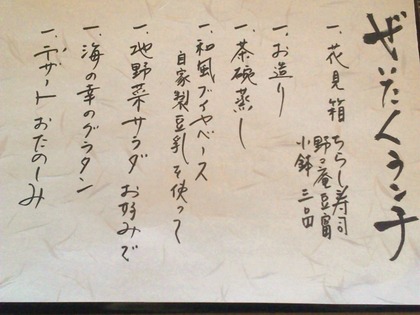 ぜいたくランチ
一、花見箱 ちらし寿司
野の庵豆富
小鉢 三品
一、お造り
一、茶碗蒸し
一、和風ブイヤベース
自家製豆乳を使って
一、地野菜サラダ お好みで
一、海の幸のグラタン
一、デザート おたのしみ